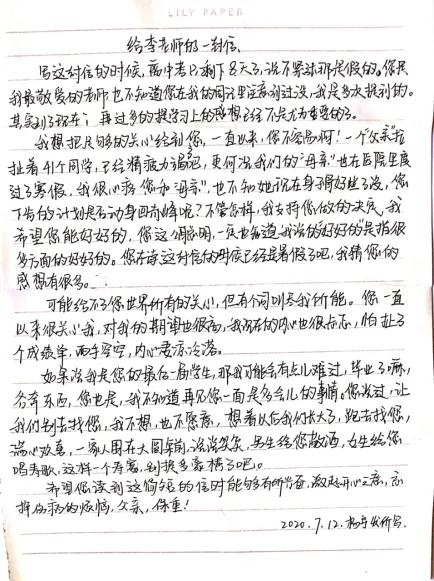 LILY PAPER
给李老师的一封信
写这封信的时候，离中考只剩下8天了，说不累那是假的。您是
我最敬爱的老师也不知道您在我的周记里注意到过没，我是多次提到的。
其实到了现在，再过多的提学习上的感想已经不是尤为重要的了。
我想把足够的关心给到您，一直以来，您不容易啊！一个"父亲"拉
扯着41个同学，已经精疲力竭吧，更何况我们的"母亲"也在医院里度
过了寒假，我很心疼您和"母亲"，也不知她现在身子骨好些了没，您
下步的计划是否动身四奇峰呢？不管怎样，我支持您做的决定，我
希望您能好好的，您这么聪明，一定也知道我说的好好的"是指很
多方面的好好的。您在读这封信的时候已经是暑假了吧，我猜您的
感想有很多。
可能给不了您世界所有的关心，但有个词叫尽我所能。您一直
以来很关心我，对我的期望也很高，我现在的内心也很忐忑，怕扯了
个成绩单，两手空空，内心凄凉冷落。
如果说我是您的最后一届学生，那我可能会有点儿难过，毕业了嘛，
各奔东西，您也是，我不知道再见您一面是多会儿的事情。您说过，让
我们别去找您，我不想，也不愿意，想着以后我们长大了，跑去找您，
满心欢喜，一家人围在大圆桌前，说说笑笑，男生给您敬酒，女生给您
唱寿歌，这样一个寿宴，别提多豪横了吧。
希望您读到这简短的信时能够有所兴奋，激起开心之意，忘
掉伤病的烦恼，父亲，保重！
2020.7.12.